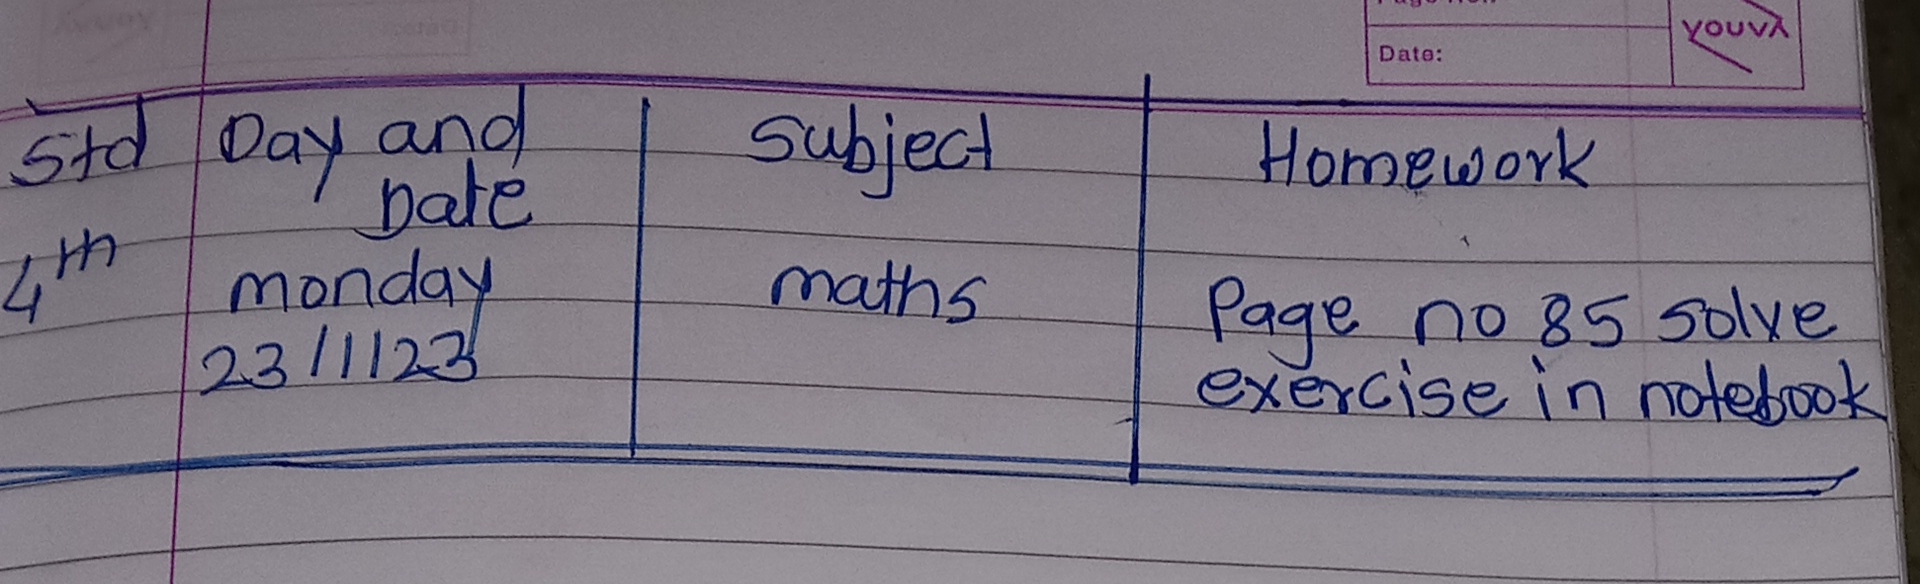 Date:
YOUVA
Std Day and Date Subject Homework
4th monday 23/1/23 maths Page no 85 solve
exercise in notebook